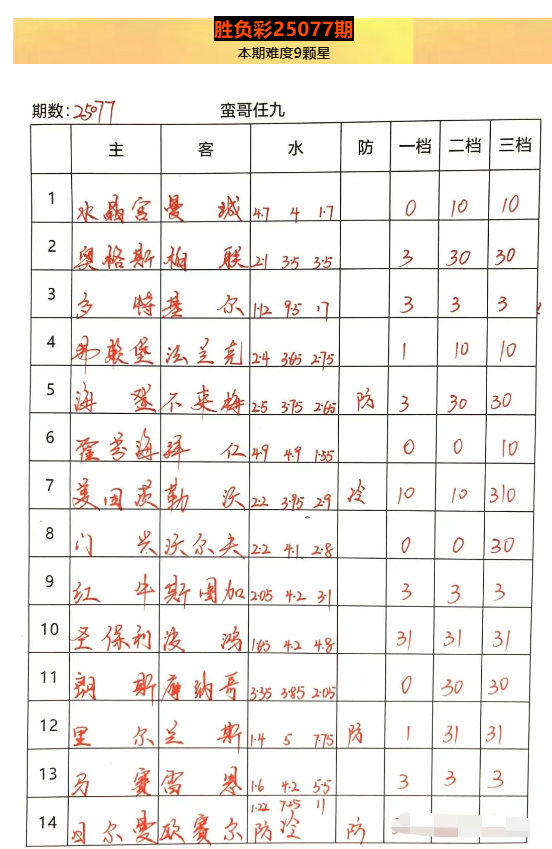 胜负彩25077期
本期难度9颗星
期数:25077 蛮哥任九
主 客 水 防 一档 二档 三档
1 水晶宫 曼城 4.7 4 1.7 0 10 10
2 奥格斯 柏联 2.1 3.5 3.5 3 30 30
3 多特 基尔 1.12 9.5 17 3 3 3
4 弗赖堡 法兰克 2.4 3.65 2.75 1 10 10
5 海登 不来梅 2.5 3.75 2.65 防 3 30 30
6 霍芬海 拜仁 4.9 4.9 1.55 0 0 10
7 美因茨 勒沃 2.2 3.95 2.9 冷 10 10 310
8 门兴 沃尔夫 2.2 4.1 2.8 0 0 30
9 红牛 斯图加 2.05 4.2 3.1 3 3 3
10 圣保利 波鸿 1.65 4.2 4.8 31 31 31
11 朗斯 摩纳哥 3.35 3.85 2.05 0 30 30
12 里尔 兰斯 1.4 5 7.75 防 1 31 31
13 马赛 雷恩 1.6 4.2 5.5 3 3 3
1.22 7.25 11
14 日尔曼 欧赛尔 防冷 防